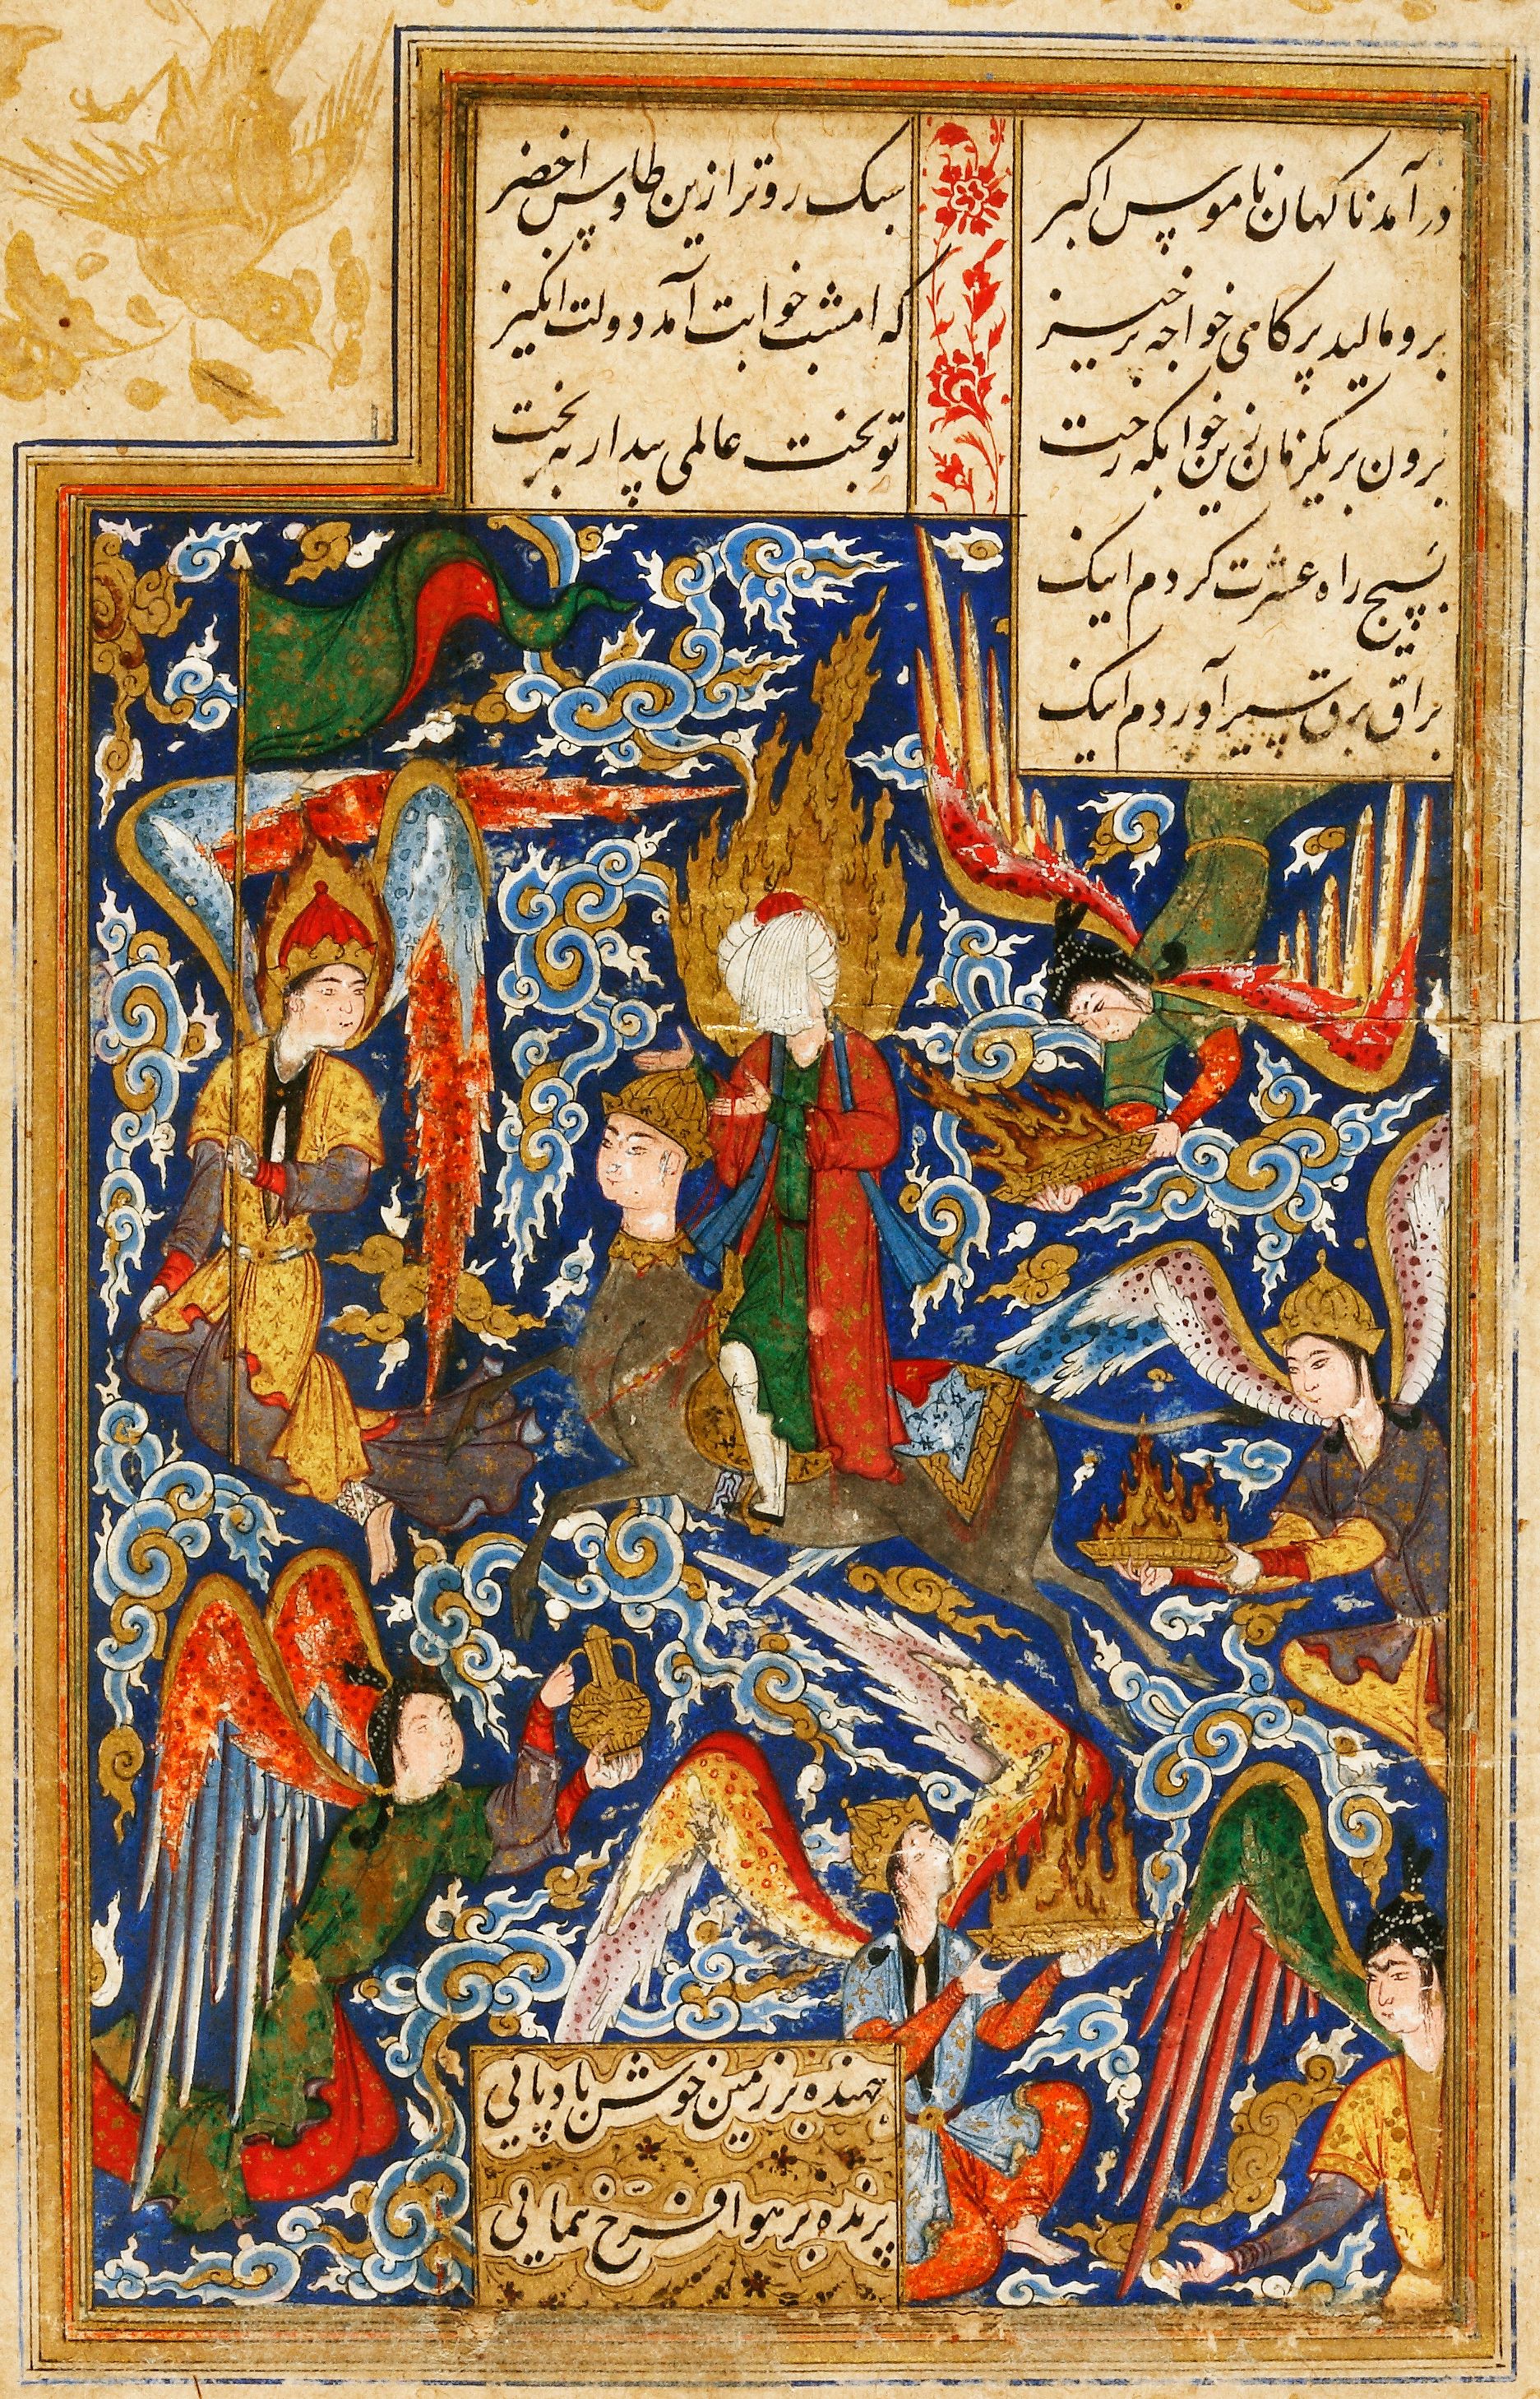 درآمد ناکهان ناموس اکبر
سبک روتر ازین طاوس اخضر
برو مالید پر کای خواجه برخیز
که امشب خوابت آمد دولت انکیز
برون بر یکزمان زین خوابکه رخت
تو بخت عالمی بیدار به بخت
بسیج راه عشرت کردم اینک
براق برق سیر آوردم اینک
جهنده بر زمین خوش بادپایی
پرنده بر هوا فرخ همایی